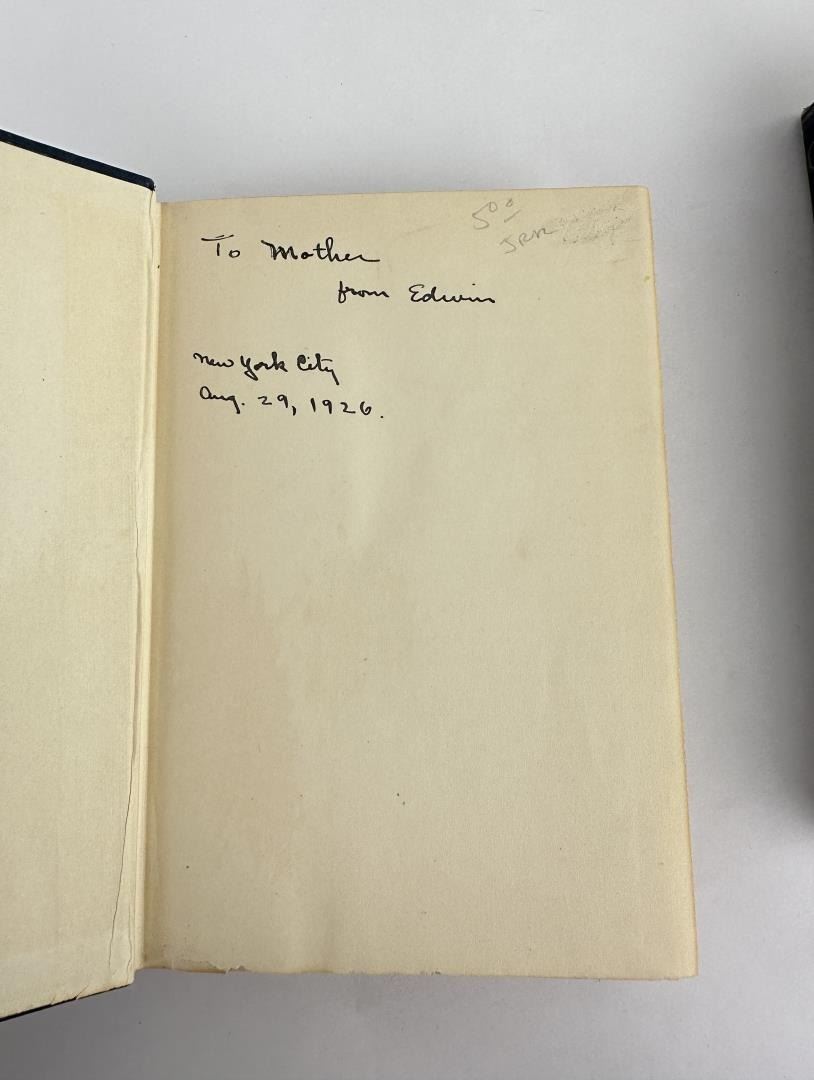 To Mother
from Edwin
New York City
Aug. 29, 1926.
5 00